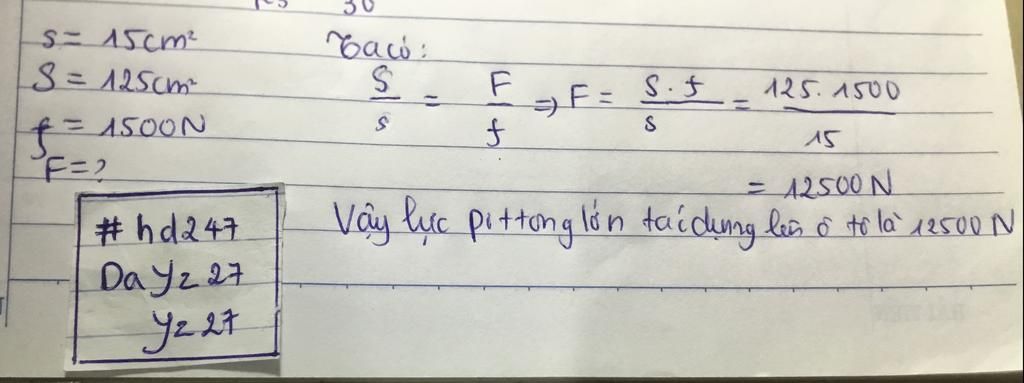 30
s = 15cm²
S = 125cm²
f = 1500N
F = ?
Ta có:
S/s = F/f => F = S.f/s = 125.1500/15
= 12500N
Vậy lực pittong lớn tác dụng lên ô tô là 12500N
#hd247
DaYz27
Yz27